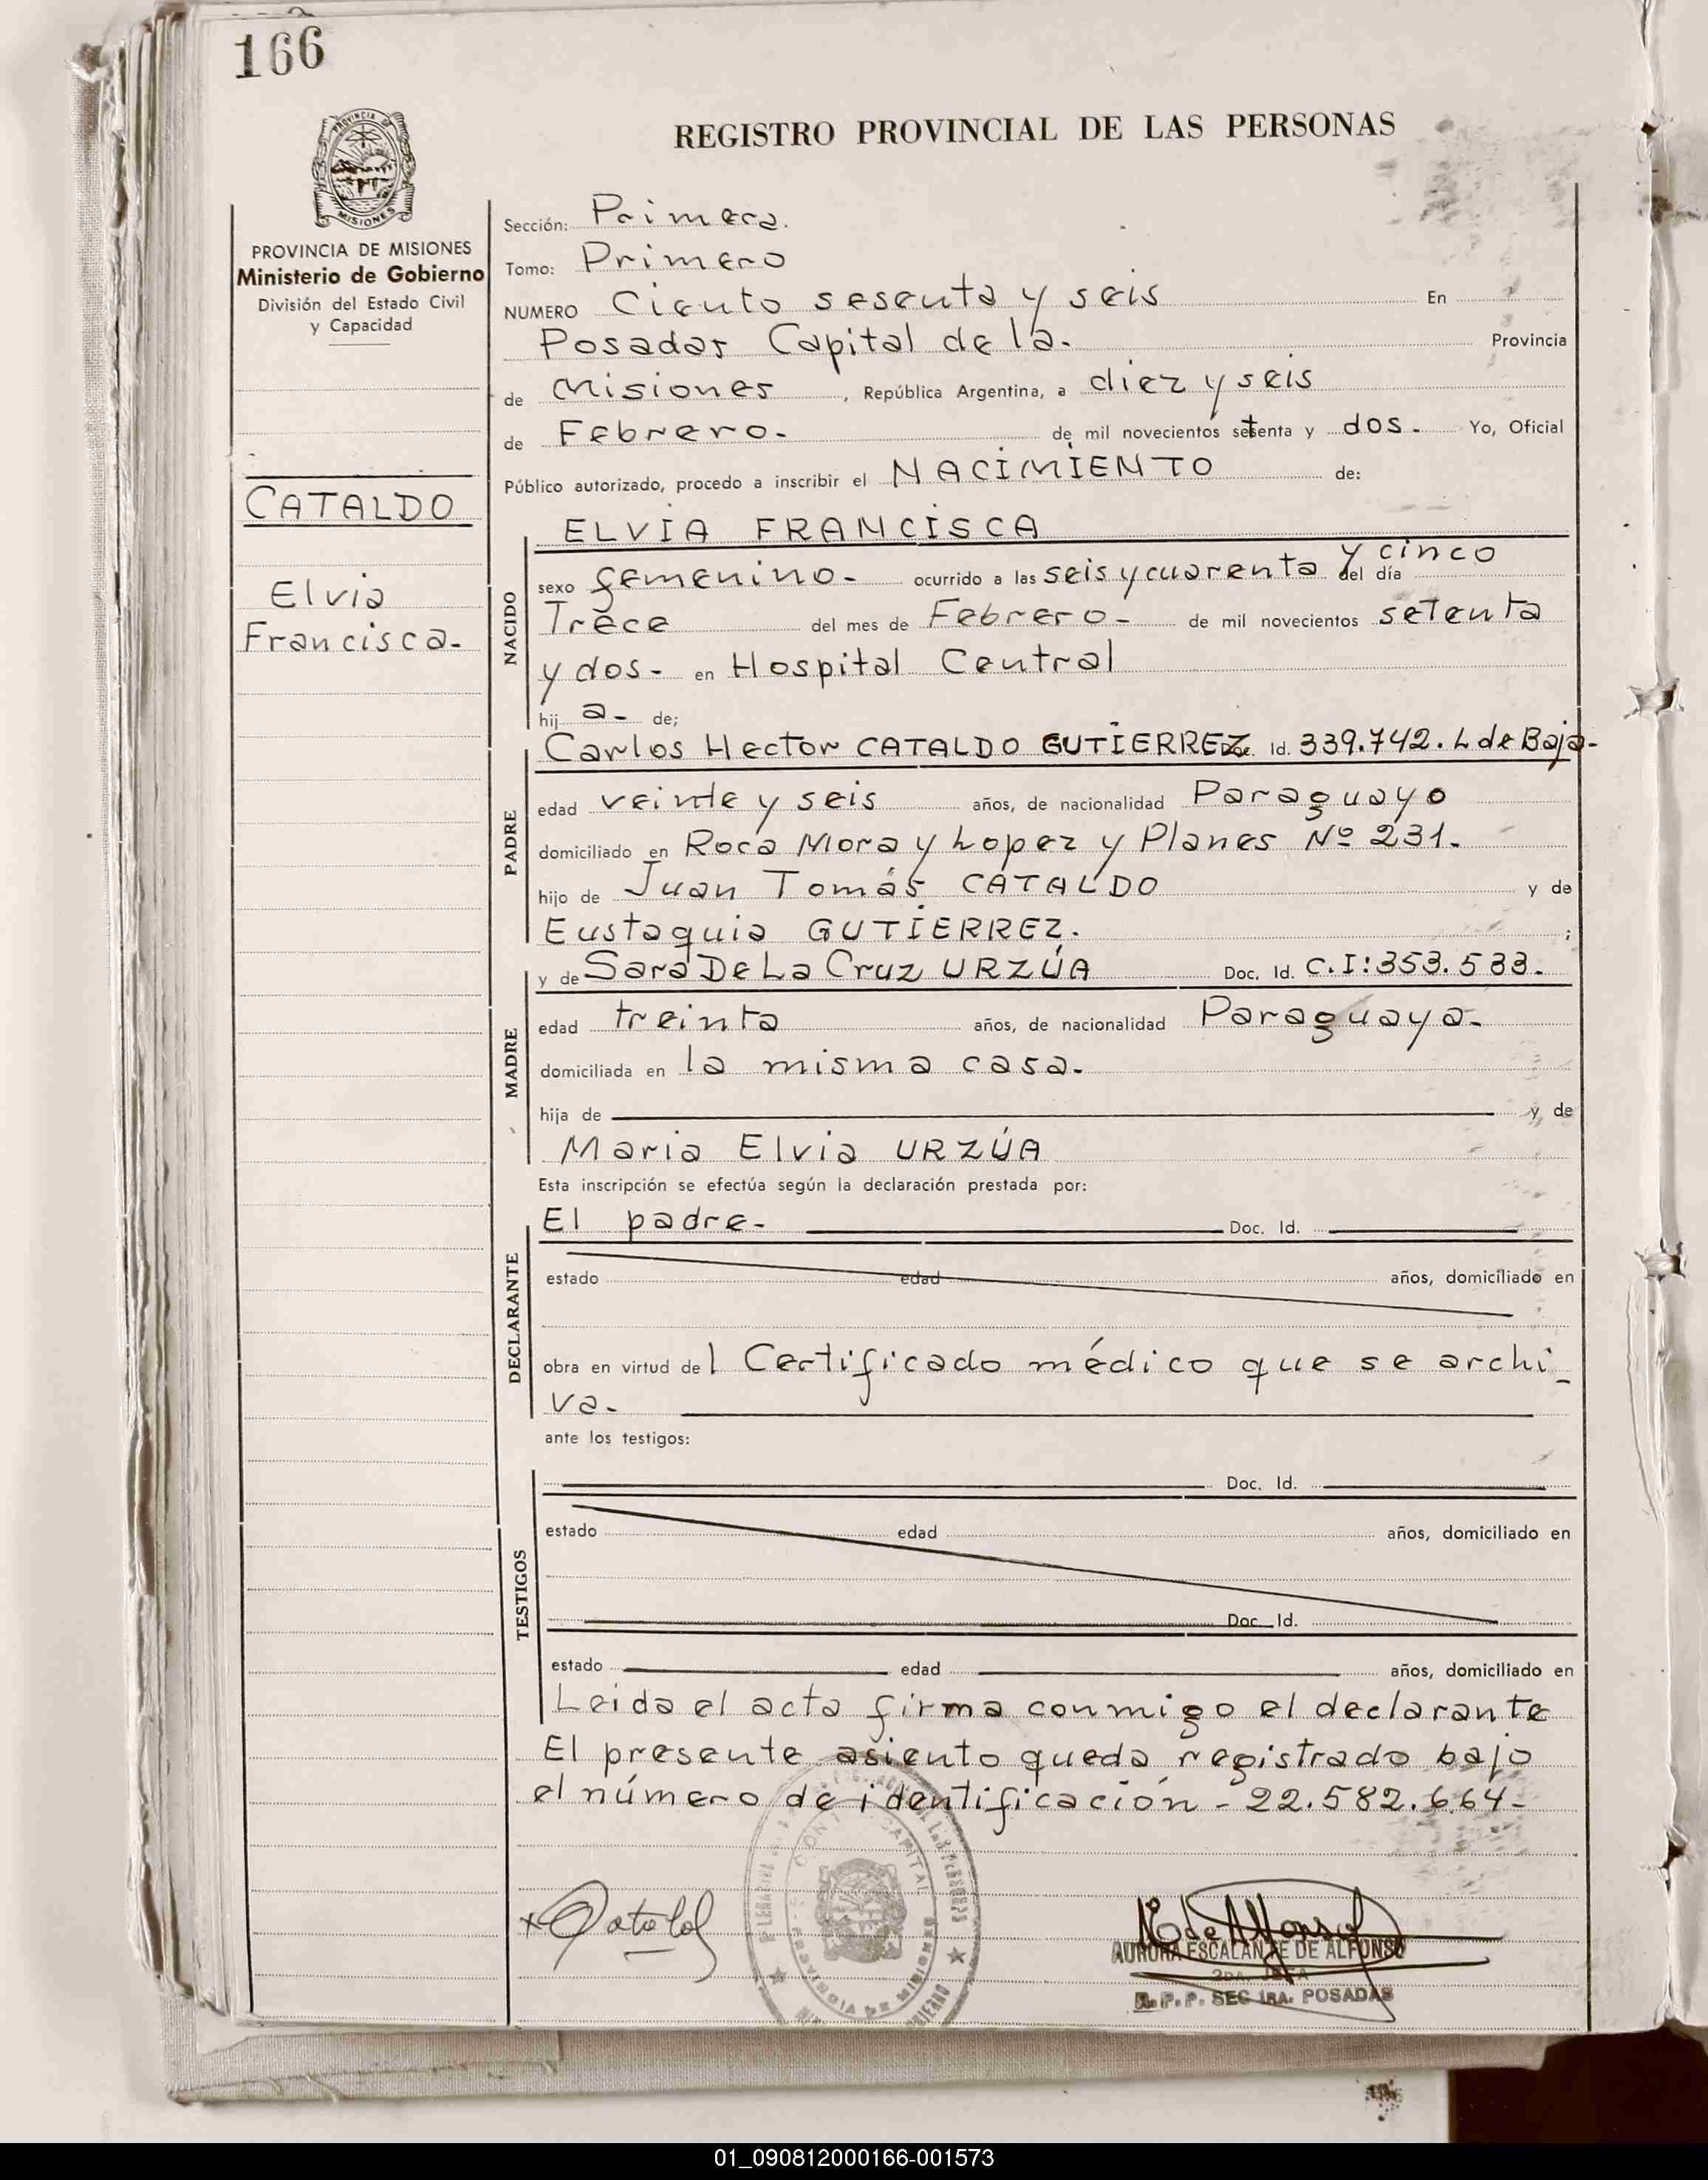 166
REGISTRO PROVINCIAL DE LAS PERSONAS
PROVINCIA DE MISIONES
Ministerio de Gobierno
División del Estado Civil
y Capacidad
CATALDO
Elvia
Francisca-
Sección: Primera.
Tomo: Primero
NUMERO Ciento sesenta y seis En
Posadas Capital de la. Provincia
de Misiones, República Argentina, a diez y seis
de Febrero.- de mil novecientos setenta y dos. Yo, Oficial
Público autorizado, procedo a inscribir el NACIMIENTO de:
ELVIA FRANCISCA
NACIDO
sexo femenino- ocurrido a las seis y cuarenta y cinco del día
Trece del mes de Febrero- de mil novecientos setenta
y dos- en Hospital Central
hij a- de;
PADRE
Carlos Hector CATALDO GUTIERREZ Id. 339.742. L de Baja-
edad veinte y seis años, de nacionalidad Paraguayo
domiciliado en Roca Mora y Lopez y Planes Nº 231.
hijo de Juan Tomás CATALDO y de
Eustaquia GUTIERREZ. ;
MADRE
y de Sara De La Cruz URZÚA Doc. Id. C.I:353.533.
edad treinta años, de nacionalidad Paraguaya-
domiciliada en la misma casa.
hija de y de
Maria Elvia URZÚA
Esta inscripción se efectúa según la declaración prestada por:
DECLARANTE
El padre- Doc. Id.
estado edad años, domiciliado en
obra en virtud del Certificado médico que se archi_
va.
ante los testigos:
TESTIGOS
Doc. Id.
estado edad años, domiciliado en
Doc. Id.
estado edad años, domiciliado en
Leida el acta firma conmigo el declarante
El presente asiento queda registrado bajo
el número de identificación - 22.582.664-
AURORA ESCALANTE DE ALFONSO
2DA. JEFA
R.P.P. SEC 1RA. POSADAS
01_090812000166-001573